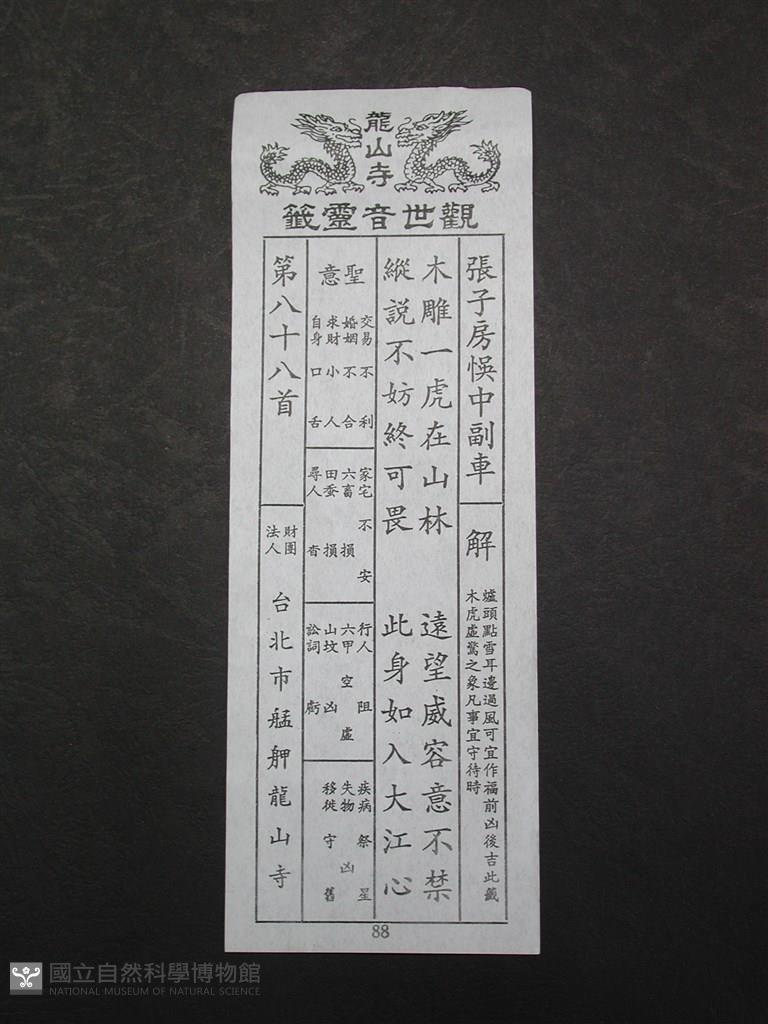 龍山寺
觀世音靈籤
張子房悞中副車
解
爐頭點雪耳邊過風可宜作福前凶後吉此籤
木虎虛驚之象凡事宜守待時
木雕一虎在山林
遠望威容意不禁
縱說不妨終可畏
此身如入大江心
聖意
交易不利
婚姻不合
求財小人
自身口舌
家宅不安
六畜損
田蚕損
尋人杳
行人阻
六甲空虛
山坟凶
訟詞虧
疾病祭星
失物凶
移徙守舊
第八十八首
財團法人
台北市艋舺龍山寺
88
國立自然科學博物館
NATIONAL MUSEUM OF NATURAL SCIENCE